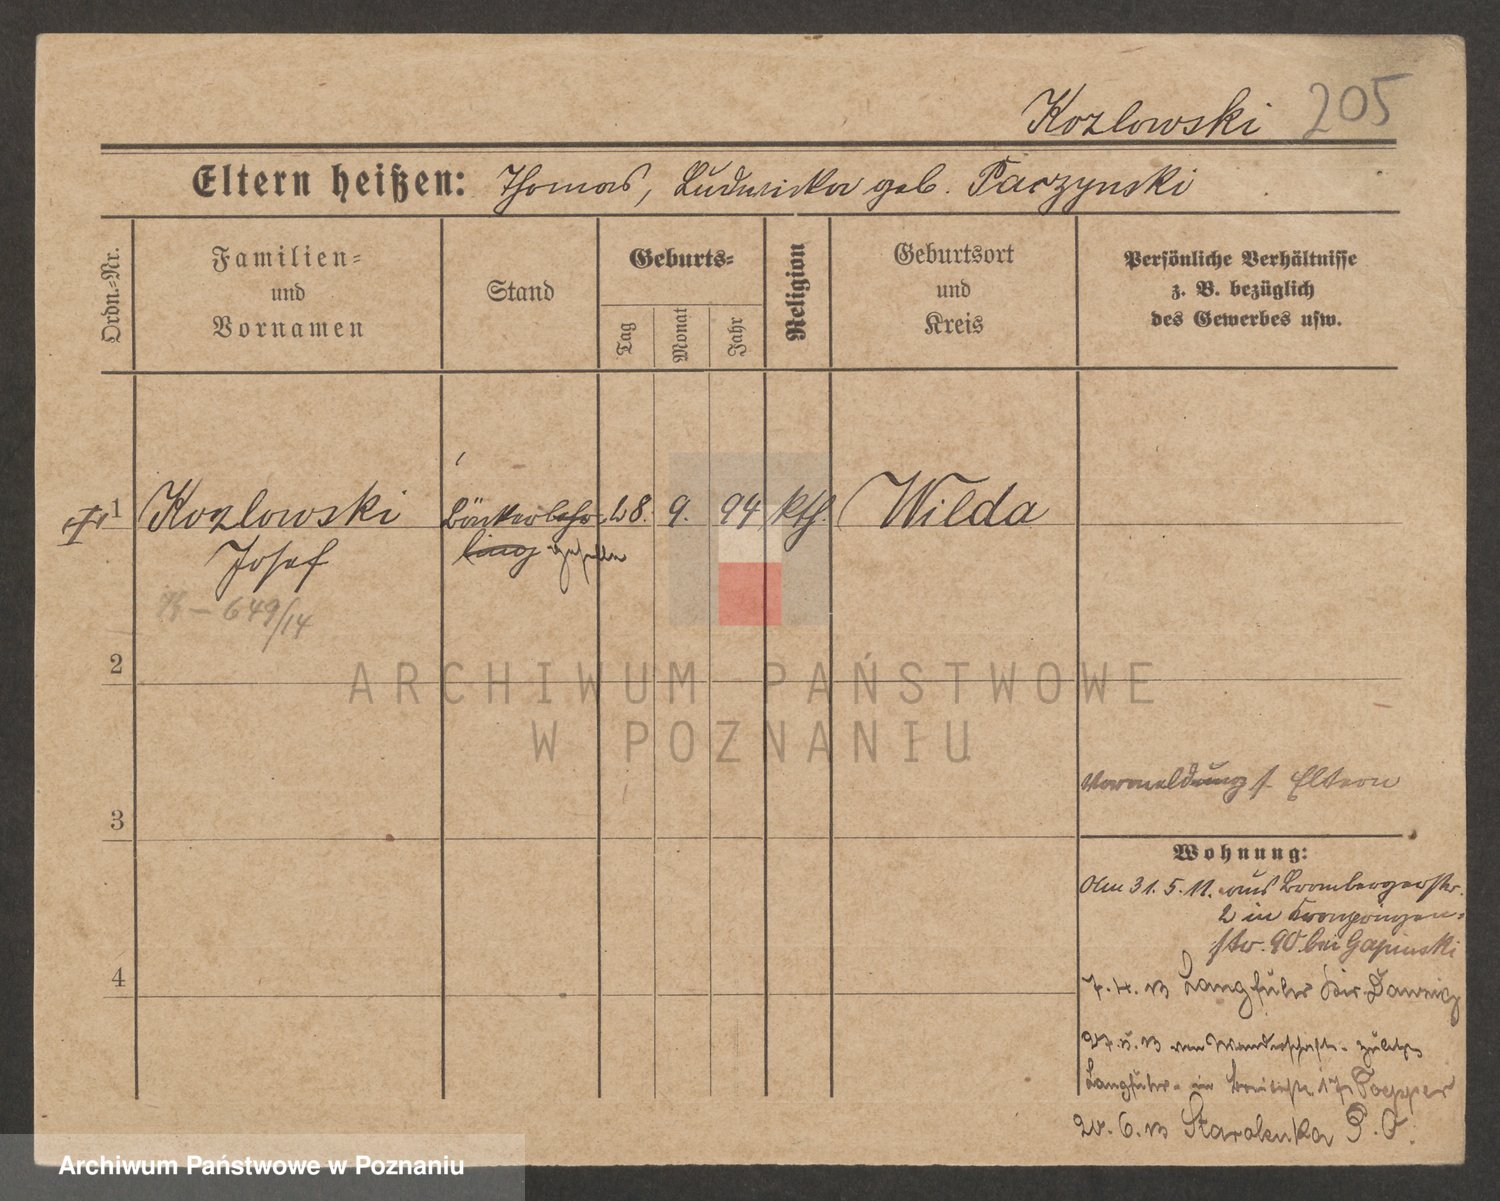 Kozlowski 205
Eltern heißen: Thomas, Ludwicka geb. Paczynski
Ordn.-Nr.
Familien-
und
Vornamen
Stand
Geburts-
Tag
Monat
Jahr
Religion
Geburtsort
und
Kreis
Persönliche Verhältnisse
z. B. bezüglich
des Gewerbes usw.
1 Kozlowski Bäckerlehr- 28. 9. 94 kth. Wilda
Josef ling geselle
649/14
2
ARCHIWUM PAŃSTWOWE
W POZNANIU
Vormeldung f. Eltern
3
Wohnung:
Am 31.5.11. aus Brombergerstr.
2 in Kronprinzen-
str. 90 bei Gapinski
4
7.4.13 Langfuhr Kr. Danzig
27.5.13 von Wanderschaft- zuletzt
Langfuhr- in Breitestr. 17 Toepper
20.6.13 Starolenka P.O.
Archiwum Państwowe w Poznaniu